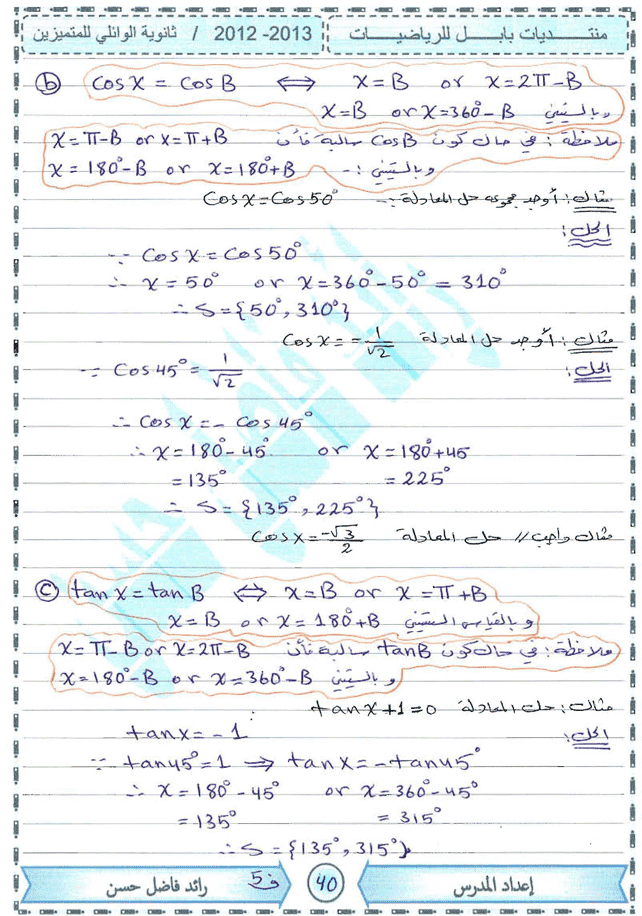 منتديات بابل للرياضيات
ثانوية الوائلي للمتميزين / 2012 -2013
ⓑ cos x = cos B ⟺ x = B or x = 2π - B
وبالستيني x = B or x = 360° - B
ملاحظة : في حال كون cos B سالبة فأن x = π - B or x = π + B
وبالستيني :- x = 180° - B or x = 180° + B
مثال : أوجد مجموعة حل المعادلة :- Cos x = Cos 50°
الحل :
∵ Cos x = Cos 50°
∴ x = 50° or x = 360° - 50° = 310°
∴ S = {50°, 310°}
مثال : أوجد حل المعادلة Cos x = -1/√2
الحل :
∵ Cos 45° = 1/√2
∴ Cos x = - Cos 45°
∴ x = 180° - 45° or x = 180° + 45
= 135° = 225°
∴ S = {135°, 225°}
مثال واجب // حل المعادلة Cos x = -√3/2
ⓒ tan x = tan B ⟺ x = B or x = π + B
وبالقياس الستيني x = B or x = 180° + B
ملاحظة : في حال كون tan B سالبة فأن x = π - B or x = 2π - B
وبالستيني x = 180° - B or x = 360° - B
مثال : حل المعادلة tan x + 1 = 0
الحل :
tan x = - 1
∵ tan 45° = 1 ⟹ tan x = - tan 45°
∴ x = 180° - 45° or x = 360° - 45°
= 135° = 315°
∴ S = {135°, 315°}
إعداد المدرس
40
ف5
رائد فاضل حسن